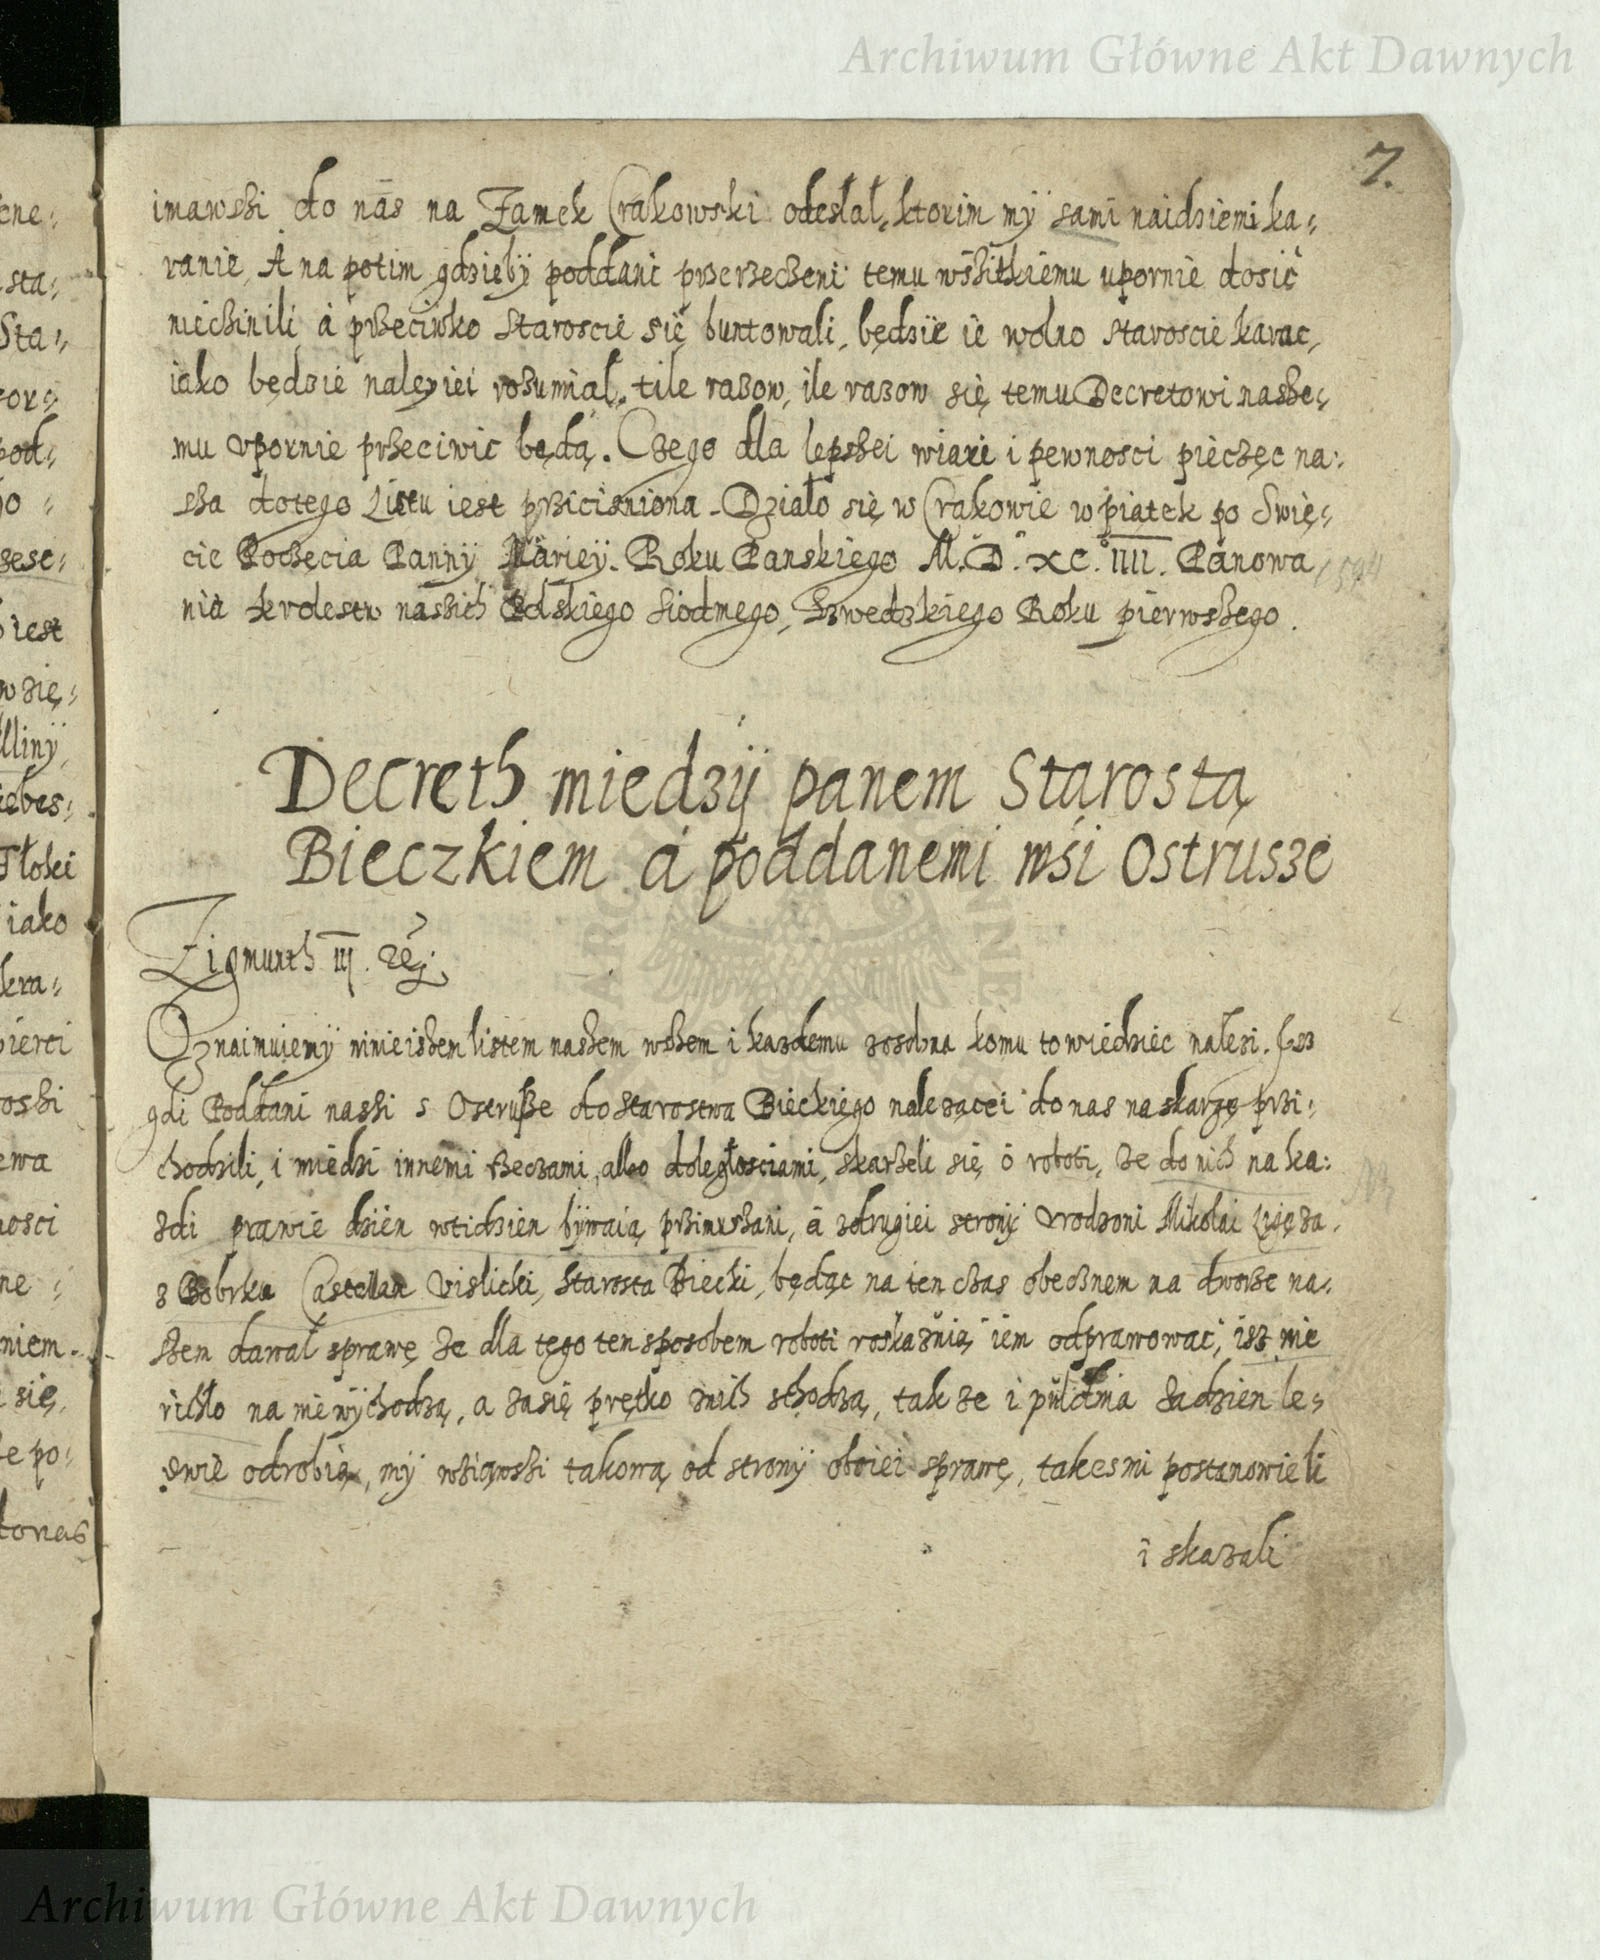 Archiwum Główne Akt Dawnych
7.
imawshi do nas na Zamek Crakowski odesłał, ktorim mÿ sami naidziemi ka„
ranie, A na potim gdziebÿ poddani przerzeczeni temu wshitkiemu upornie dosic
niechinili, á przeciwko Staroscie się buntowali, będzie ie wolno staroscie karac,
iako będzie nalepiei rozumial, tile razow, ile razow się temu Decretowi nashe„
mu vpornie przeciwic będą. Czego dla lepshei wiari i pewnosci pieczęc na„
sha do tego Listu iest prziciśniona. Działo się w Crakowie w piątek po Swię„
cie Poczęcia Pannÿ Marieÿ. Roku Panskiego M.D.XC.IIII. Panowa
nia krolestw nashich Polskiego siodmego, Szwedzkiego Roku pierwshego.
1594
Decreth miedzÿ panem Starostą
Bieczkiem á poddanemi wśi Ostrusze
Zigmunth III. etc.
Oznaimuiemÿ ninieishem listem nashem wshem i kazdemu zosobna komu to wiedziec nalezi. Isz
gdi Poddani nashi s Ostrusze do Starostwa Bieckiego nalezącei do nas na skargę przi„
chodzili, i miedzi innemi rzeczami, albo doległosciami, skarzeli się o roboti, ze do nich na ka„
zdi prawie dzien wtidzien bÿwaią przimushani, á zdrugiei stronÿ Vrodzoni Mikolai Ligęza
z Bobrka Castellan Vislicki, Starosta Biecki, będąc na ten czas obecznem na dworze na„
szem dawał sprawę ze dla tego ten sposobem roboti roskaznią iem odprawowac, isz nie
richło na nie wÿchodzą, a zasię prętko znich schodzą, tak ze i pułdnia za dzien le„
dwie odrobią, mÿ wziąwshi takową od stronÿ oboiei sprawę, takesmi postanowieli
i skazali
Archiwum Główne Akt Dawnych